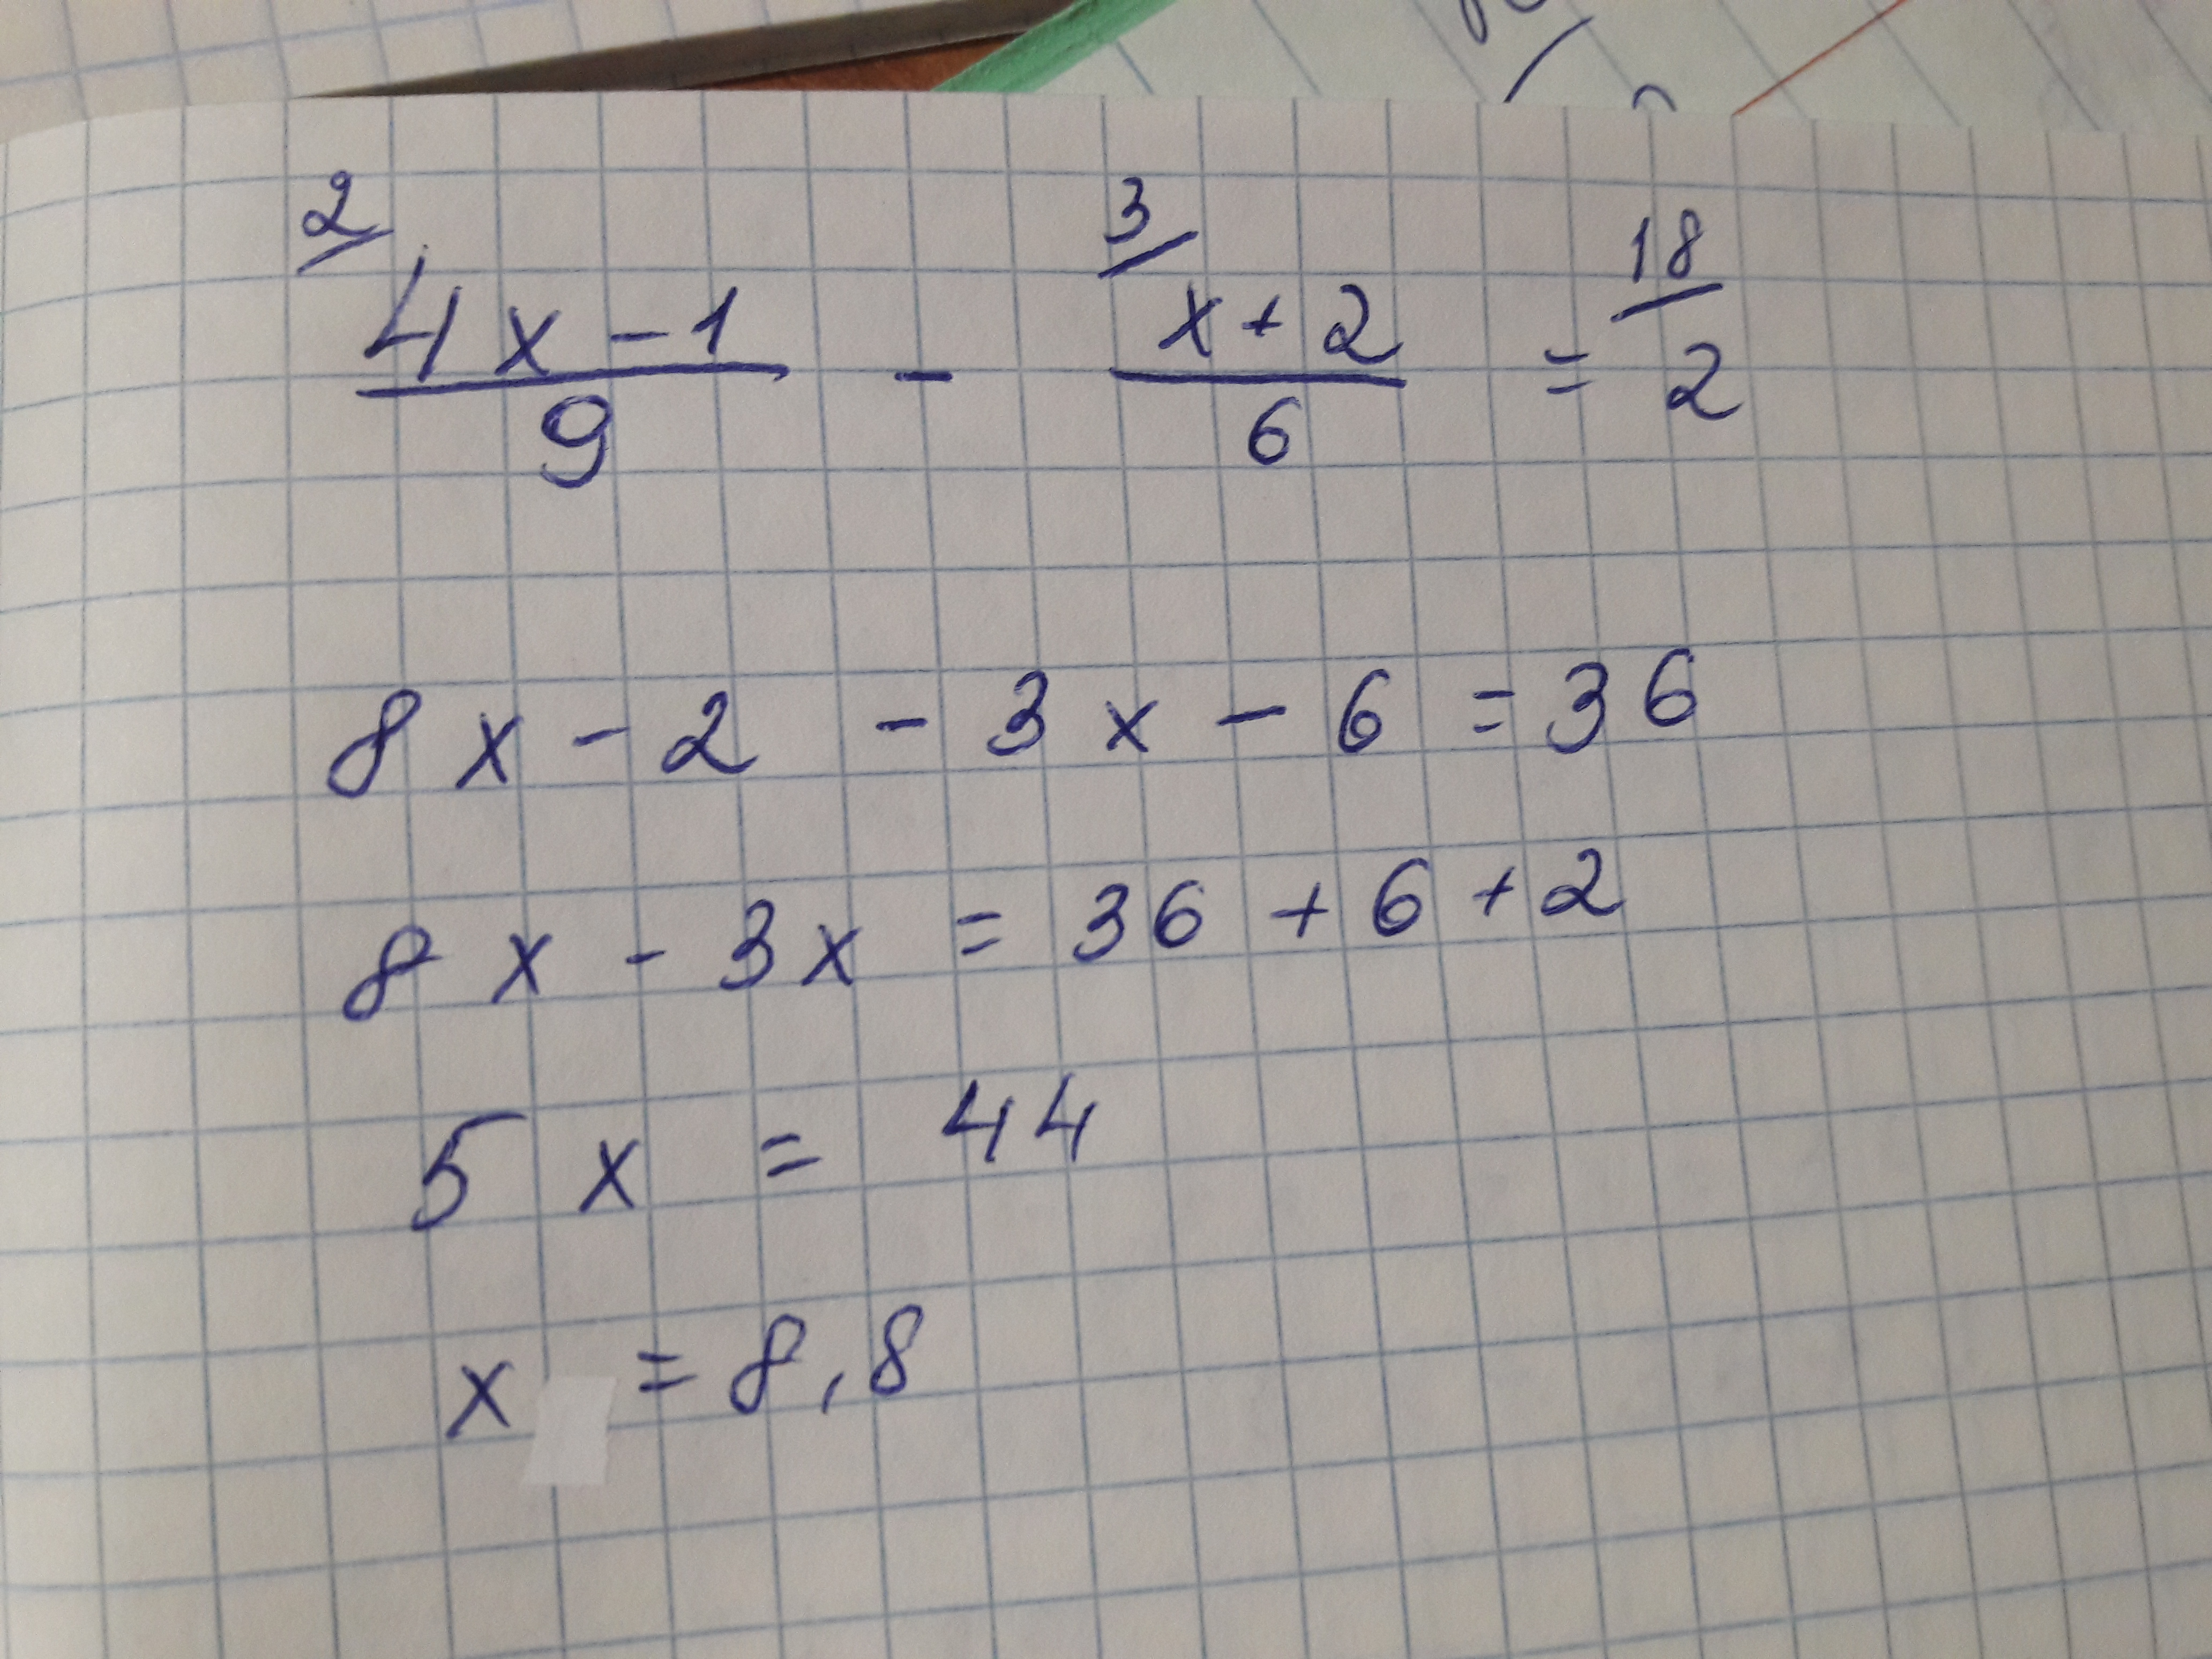 2/ 3/ 18/
4x-1/9 - x+2/6 = 2
8x - 2 - 3x - 6 = 36
8x - 3x = 36 + 6 + 2
5x = 44
x = 8,8